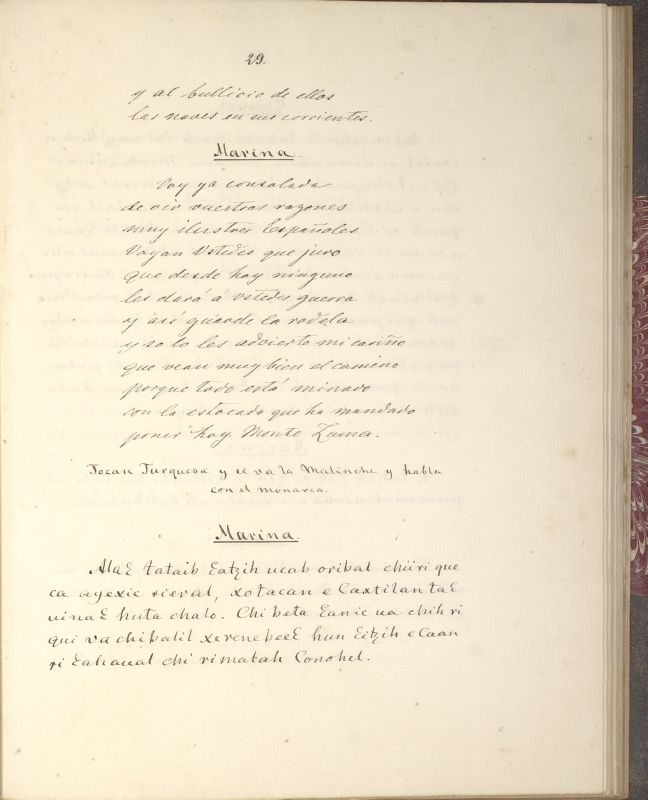 29.
y al bullicio de ellos
las naves en sus corrientes.
Marina.
Voy ya consolada
de oir vuestras razones
muy ilustres Españoles
Vayan Vstedes que juro
que desde hoy ninguno
les dará á ustedes guerra
y asi guarde la rodela
y so lo les advierto mi cariño
que vean muy bien el camino
porque todo está minado
con la estocada que ha mandado
poner hoy Monte Zuma.
Tocan Turquesa y se va la Malinche y habla
con el monarca.
Marina.
Alaɛ tataib ɛatzih ucab oribal chiiri que
ca ayexic rieval, xotacan e Caxtilan taɛ
uinaɛ huta chalo. Chi beta ɛanic ua chih ri
qui va chibalil xerenebeeɛ hun ɛitzih e Caan
ri ɛahaual chi rimatah Conohel.